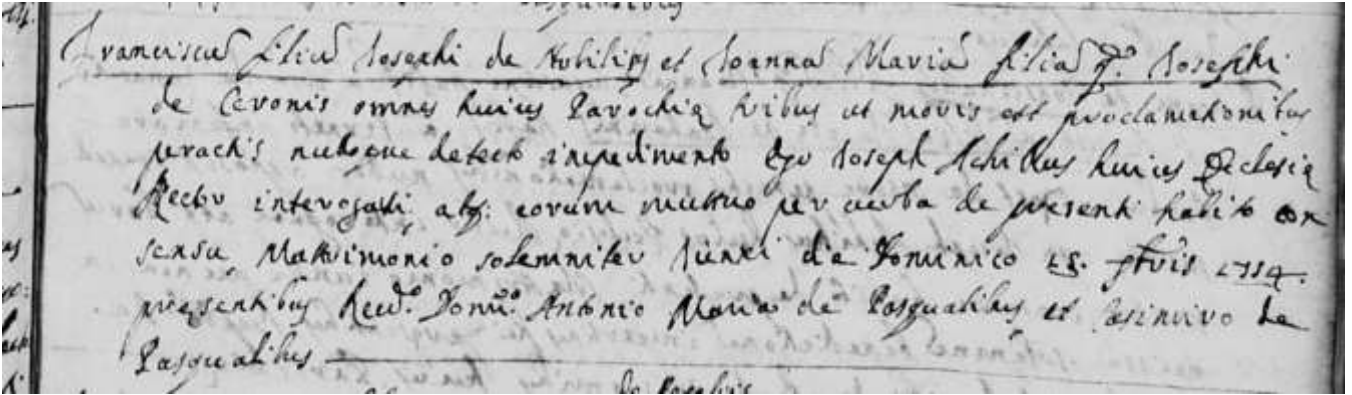 Franciscũ filiũ Josephi de Nobilibꝫ et Joannã Mariã filiã q.ᵐ Josephi
de Ceronis omnes huius Parochię tribus ut moris est proclamationibꝫ
peractis nulloque detecto impedimento Ego Joseph Achillus huius Ecclesię
Rector interogavi, atq: eorum mutuo per verba de presenti habito con
sensu, Matrimonio solemniter iunxi die Dominico 18. 1714.
pręsentibus Revd.º Domn.º Antonio Maria de Pasqualibꝫ et Casimiro de
Pasqualibus
de